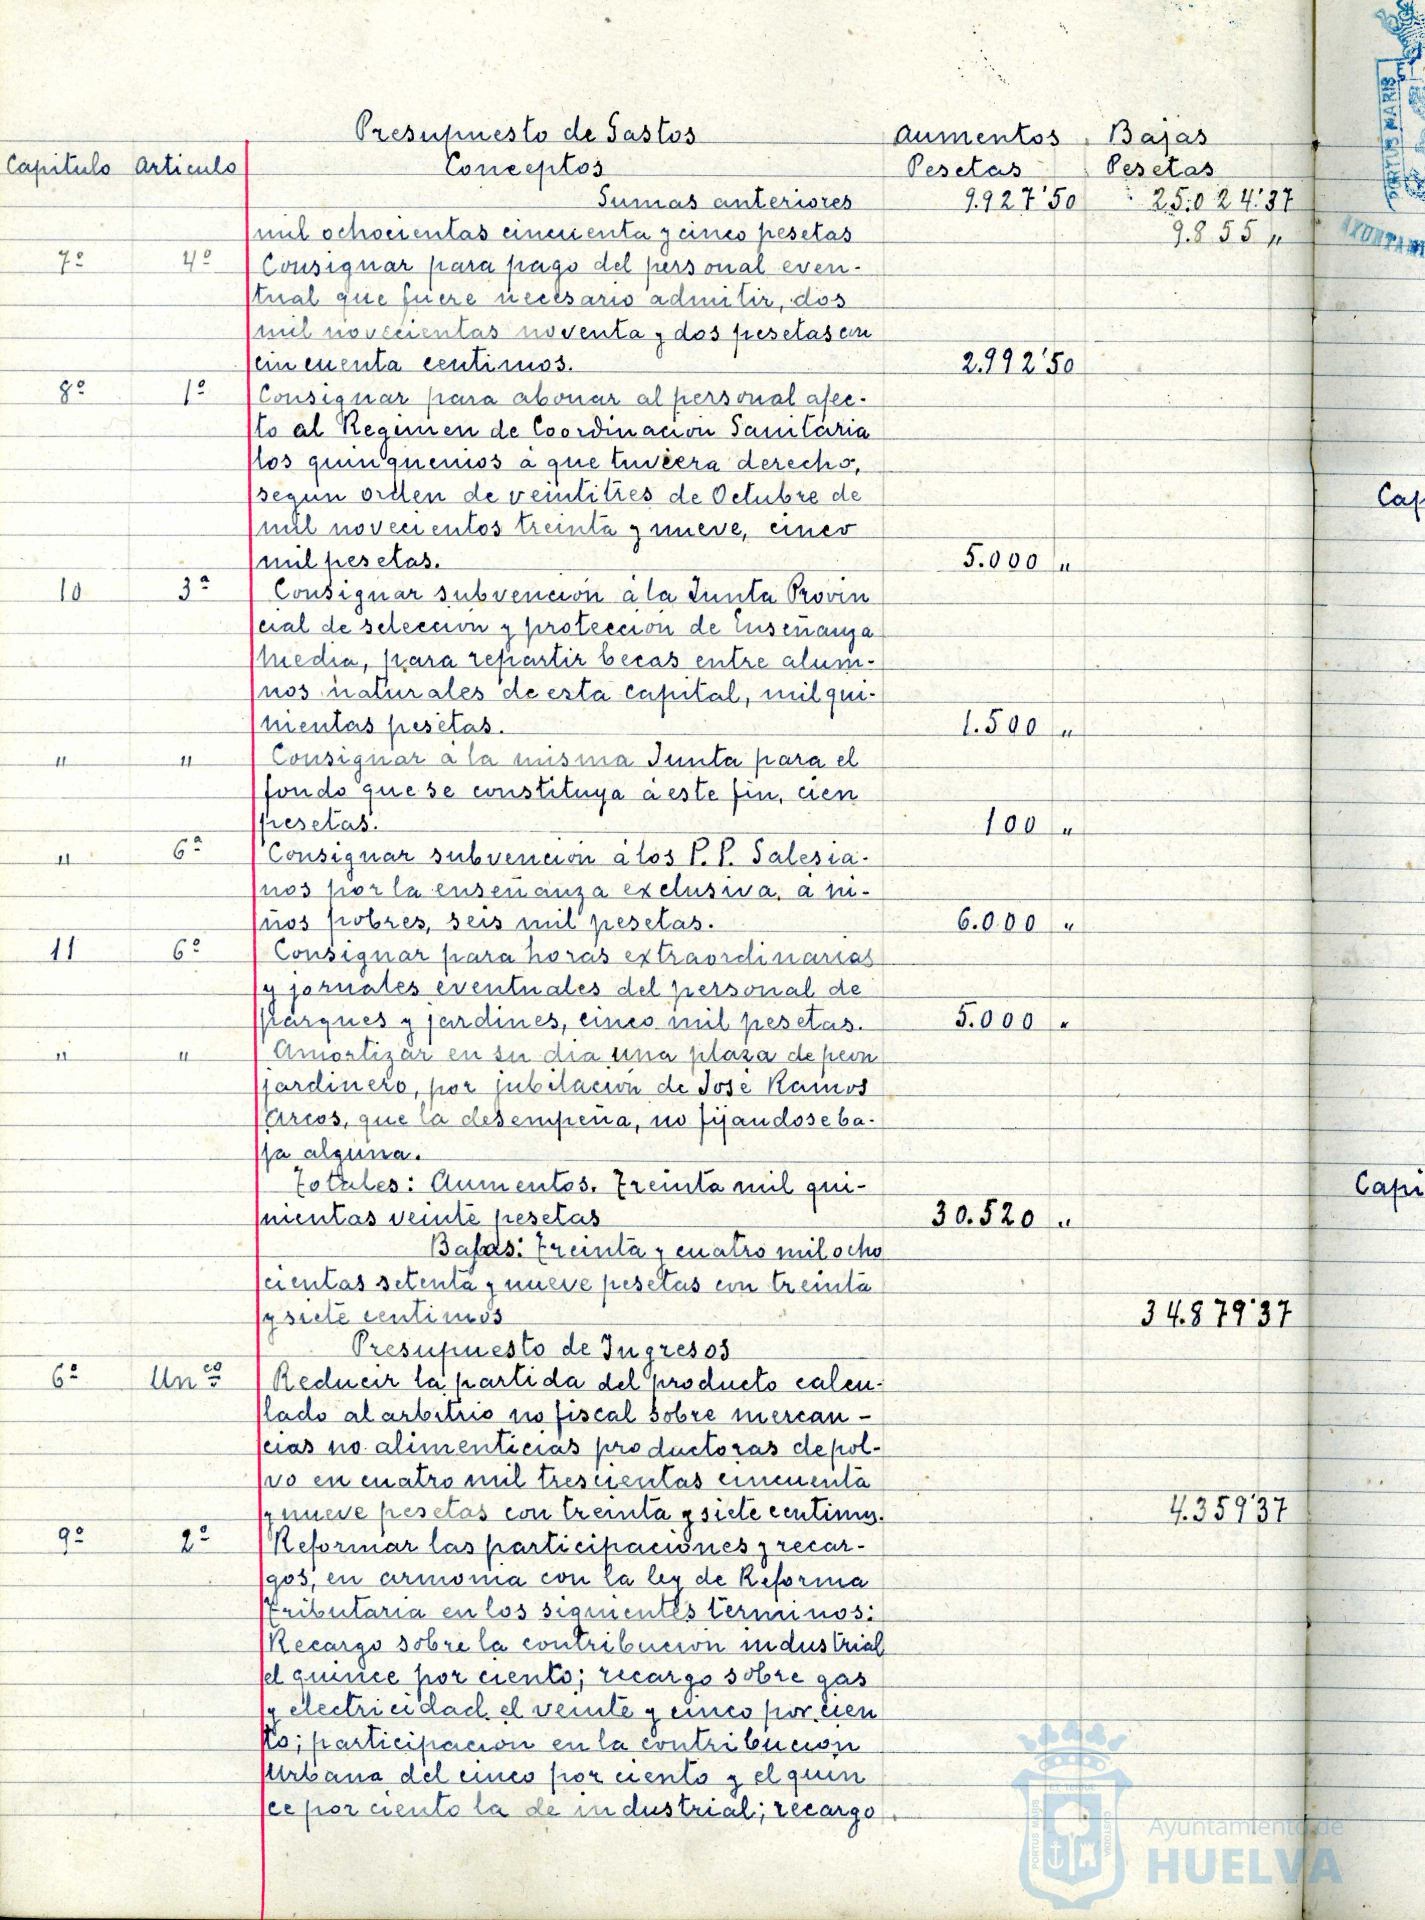 Presupuesto de Gastos Aumentos Bajas
Capitulo Articulo Conceptos Pesetas Pesetas
Sumas anteriores 9.927'50 25.024'37
mil ochocientas cincuenta y cinco pesetas 9.855 "
7º 4º Consignar para pago del personal even-
tual que fuere necesario admitir, dos
mil novecientas noventa y dos pesetas con
cincuenta centimos. 2.992'50
8º 1º Consignar para abonar al personal afec-
to al Regimen de Coordinación Sanitaria
los quinquenios á que tuviera derecho,
segun orden de veintitres de Octubre de
mil novecientos treinta y nueve, cinco
mil pesetas. 5.000 "
10 3ª Consignar subvención á la Junta Provin
cial de selección y protección de Enseñanza
Media, para repartir becas entre alum-
nos naturales de esta capital, mil qui-
nientas pesetas. 1.500 "
" " Consignar á la misma Junta para el
fondo que se constituya á este fin, cien
pesetas. 100 "
" 6ª Consignar subvención á los P.P. Salesia-
nos por la enseñanza exclusiva, á ni-
ños pobres, seis mil pesetas. 6.000 "
11 6º Consignar para horas extraordinarias
y jornales eventuales del personal de
parques y jardines, cinco mil pesetas. 5.000 "
" " Amortizar en su dia una plaza de peon
jardinero, por jubilación de José Ramos
Arcos, que la desempeña, no fijandose ba-
ja alguna.
Totales: Aumentos. Treinta mil qui-
nientas veinte pesetas 30.520 "
Bajas: Treinta y cuatro mil ocho
cientas setenta y nueve pesetas con treinta
y siete centimos 34.879'37
Presupuesto de Ingresos
6º Unco Reducir la partida del producto calcu-
lado al arbitrio no fiscal sobre mercan-
cias no alimenticias productoras de pol-
vo en cuatro mil trescientas cincuenta
y nueve pesetas con treinta y siete centimos. 4.359'37
9º 2º Reformar las participaciones y recar-
gos, en armonia con la ley de Reforma
Tributaria en los siguientes terminos:
Recargo sobre la contribución industrial
el quince por ciento; recargo sobre gas
y electricidad el veinte y cinco por cien
to; participación en la contribución
Urbana del cinco por ciento y el quin
ce por ciento la de industrial; recargo
Cap
Capi
PORTUS MARIS
Ayuntamiento de
HUELVA